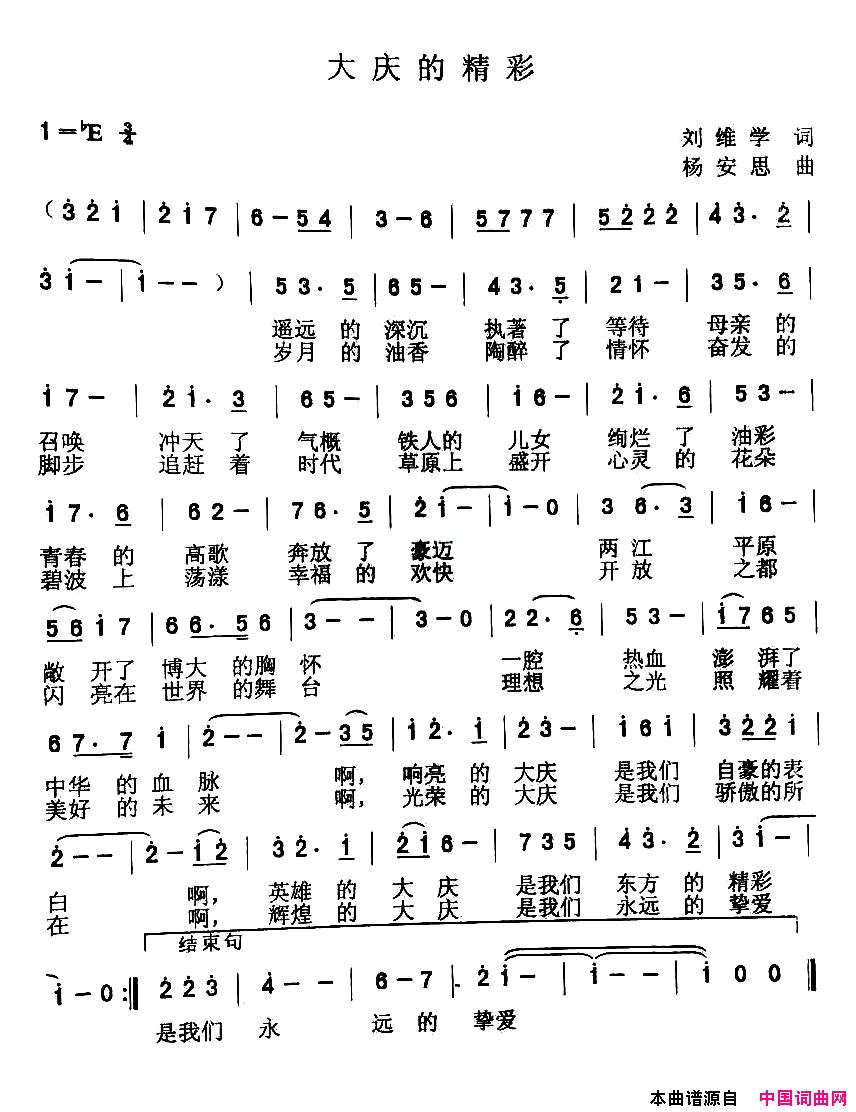 大庆的精彩
1=♭E 3/4
刘维学 词
杨安思 曲
(3̇ 2̇ 1̇ | 2̇ 1̇ 7 | 6 - 5 4 | 3 - 6 | 5 7 7 7 | 5 2̇ 2̇ 2̇ | 4̇ 3̇ · 2̇ |
3̇ 1̇ - | 1̇ - - ) | 5 3 · 5 | 6 5 - | 4 3 · 5̣ | 2 1 - | 3 5 · 6 |
遥远 的 深沉 执著 了 等待 母亲 的
岁月 的 油香 陶醉 了 情怀 奋发 的
1̇ 7 - | 2̇ 1̇ · 3 | 6 5 - | 3 5 6 | 1̇ 6 - | 2̇ 1̇ · 6 | 5 3 - |
召唤 冲天 了 气概 铁人的 儿女 绚烂 了 油彩
脚步 追赶 着 时代 草原上 盛开 心灵 的 花朵
1̇ 7 · 6 | 6 2 - | 7 6 · 5 | 2̇ 1̇ - | 1̇ - 0 | 3 6 · 3 | 1̇ 6 - |
青春 的 高歌 奔放 了 豪迈 两江 平原
碧波 上 荡漾 幸福 的 欢快 开放 之都
5 6 1̇ 7 | 6 6 · 5 6 | 3 - - | 3 - 0 | 2 2 · 6̣ | 5 3 - | 1̇ 7 6 5 |
敞 开了 博大 的胸 怀 一腔 热血 澎 湃了
闪 亮在 世界 的舞 台 理想 之光 照 耀着
6 7 · 7 1̇ | 2̇ - - | 2̇ - 3 5 | 1̇ 2̇ · 1̇ | 2̇ 3̇ - | 1̇ 6 1̇ | 3̇ 2̇ 2̇ 1̇ |
中华 的 血 脉 啊, 响亮 的 大庆 是我们 自豪的表
美好 的 未 来 啊, 光荣 的 大庆 是我们 骄傲的所
2̇ - - | 2̇ - 1̇ 2̇ | 3̇ 2̇ · 1̇ | 2̇ 1̇ 6 - | 7 3 5 | 4̇ 3̇ · 2̇ | 3̇ 1̇ - |
白 啊, 英雄 的 大 庆 是我们 东方 的 精彩
在 啊, 辉煌 的 大 庆 是我们 永远 的 挚爱
结束句
1̇ - 0 :‖ 2̇ 2̇ 3̇ | 4̇ - - | 6 - 7 | 2̇ 1̇ - | 1̇ - - | 1̇ 0 0 ‖
是我们 永 远 的 挚爱
本曲谱源自 中国词曲网